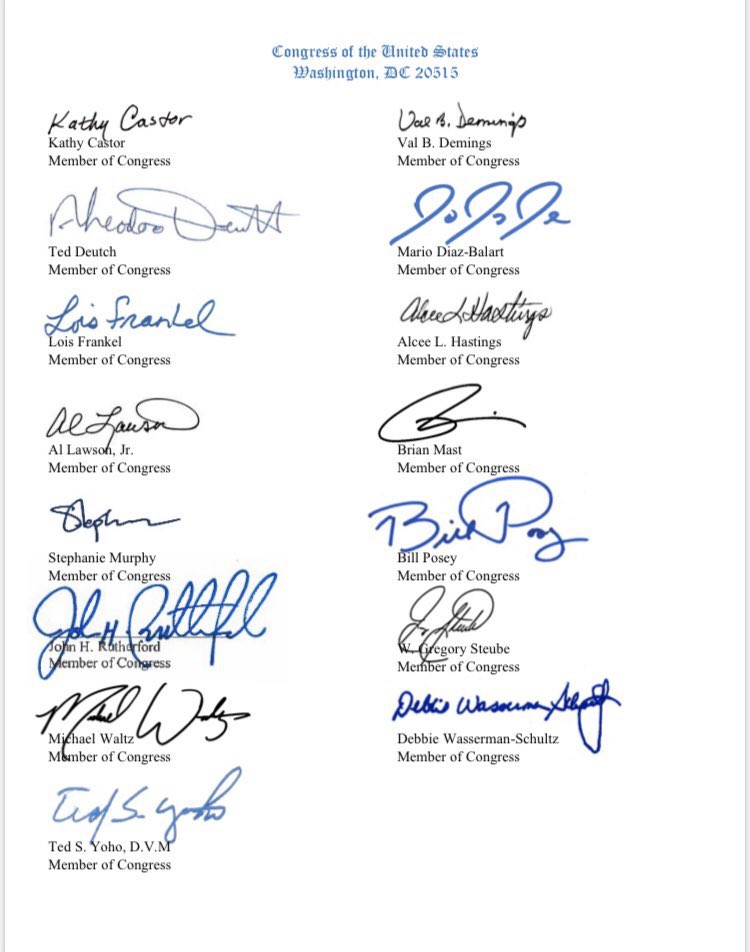 Congress of the United States
Washington, DC 20515
Kathy Castor
Kathy Castor
Member of Congress
Val B. Demings
Val B. Demings
Member of Congress
Theodore Deutch
Ted Deutch
Member of Congress
Mario Diaz-Balart
Member of Congress
Lois Frankel
Lois Frankel
Member of Congress
Alcee L Hastings
Alcee L. Hastings
Member of Congress
Al Lawson
Al Lawson, Jr.
Member of Congress
Brian Mast
Member of Congress
Stephanie Murphy
Member of Congress
Bill Posey
Bill Posey
Member of Congress
John H. Rutherford
John H. Rutherford
Member of Congress
W. Gregory Steube
Member of Congress
Michael Waltz
Michael Waltz
Member of Congress
Debbie Wasserman Schultz
Debbie Wasserman-Schultz
Member of Congress
Ted S. Yoho
Ted S. Yoho, D.V.M
Member of Congress